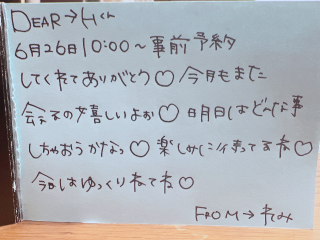 DEAR→Hくん
6月26日10:00〜事前予約
してくれてありがとう♡今月もまた
会えるの嬉しいよぉ♡明日はどんな事
しちゃおうかなっ♡楽しみに待ってるね♡
今日はゆっくりねてね♡
FROM→れみ